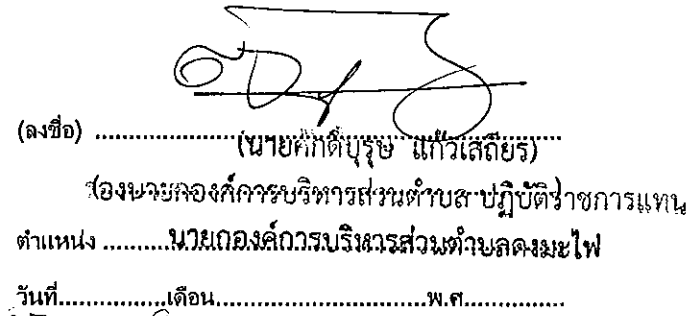 (ลงชื่อ) ........................................................................
(นายศักดิ์บุรุษ แก้วเสถียร)
รองนายกองค์การบริหารส่วนตำบล ปฏิบัติราชการแทน
ตำแหน่ง ..........นายกองค์การบริหารส่วนตำบลดงมะไฟ
วันที่................เดือน...............................พ.ศ...............